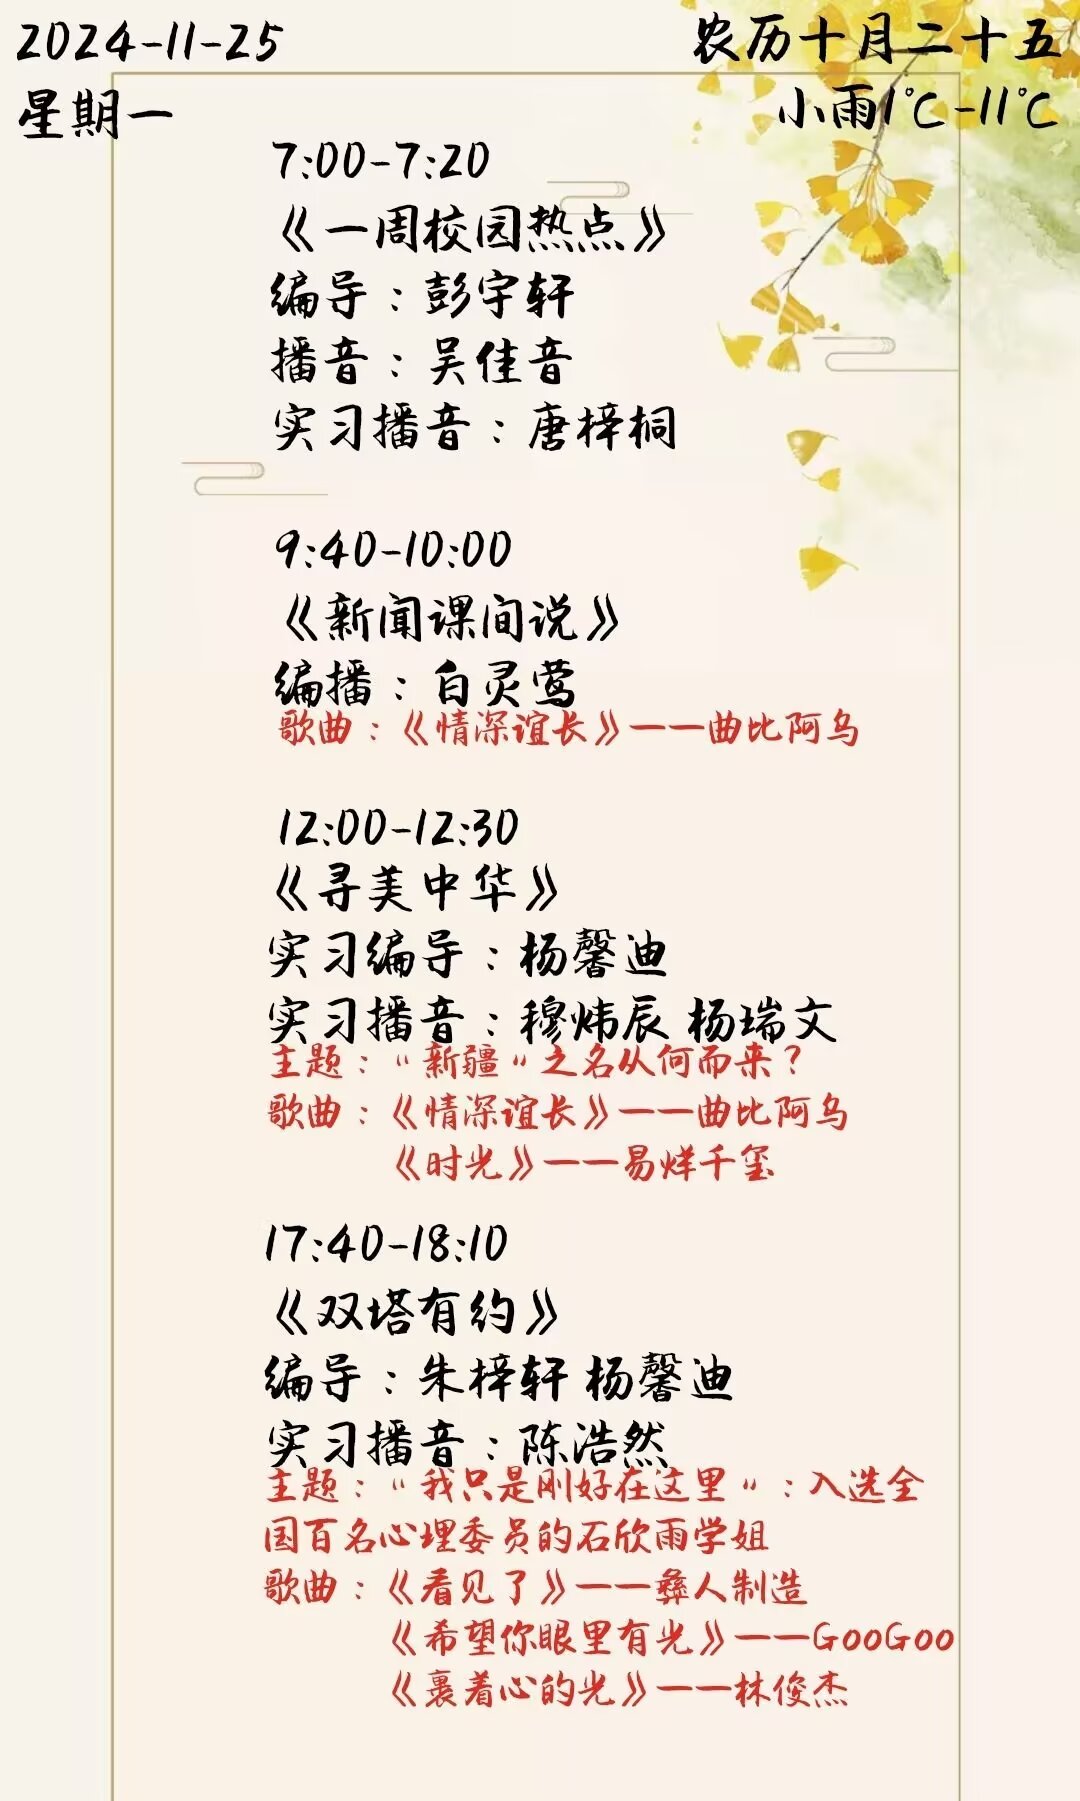 2024-11-25
农历十月二十五
星期一
小雨1℃-11℃
7:00-7:20
《一周校园热点》
编导：彭宇轩
播音：吴佳音
实习播音：唐梓桐
9:40-10:00
《新闻课间说》
编播：白灵莺
歌曲：《情深谊长》——曲比阿乌
12:00-12:30
《寻美中华》
实习编导：杨馨迪
实习播音：穆炜辰 杨瑞文
主题：“新疆”之名从何而来？
歌曲：《情深谊长》——曲比阿乌
《时光》——易烊千玺
17:40-18:10
《双塔有约》
编导：朱梓轩 杨馨迪
实习播音：陈浩然
主题：“我只是刚好在这里”：入选全
国百名心理委员的石欣雨学姐
歌曲：《看见了》——彝人制造
《希望你眼里有光》——GooGoo
《裹着心的光》——林俊杰